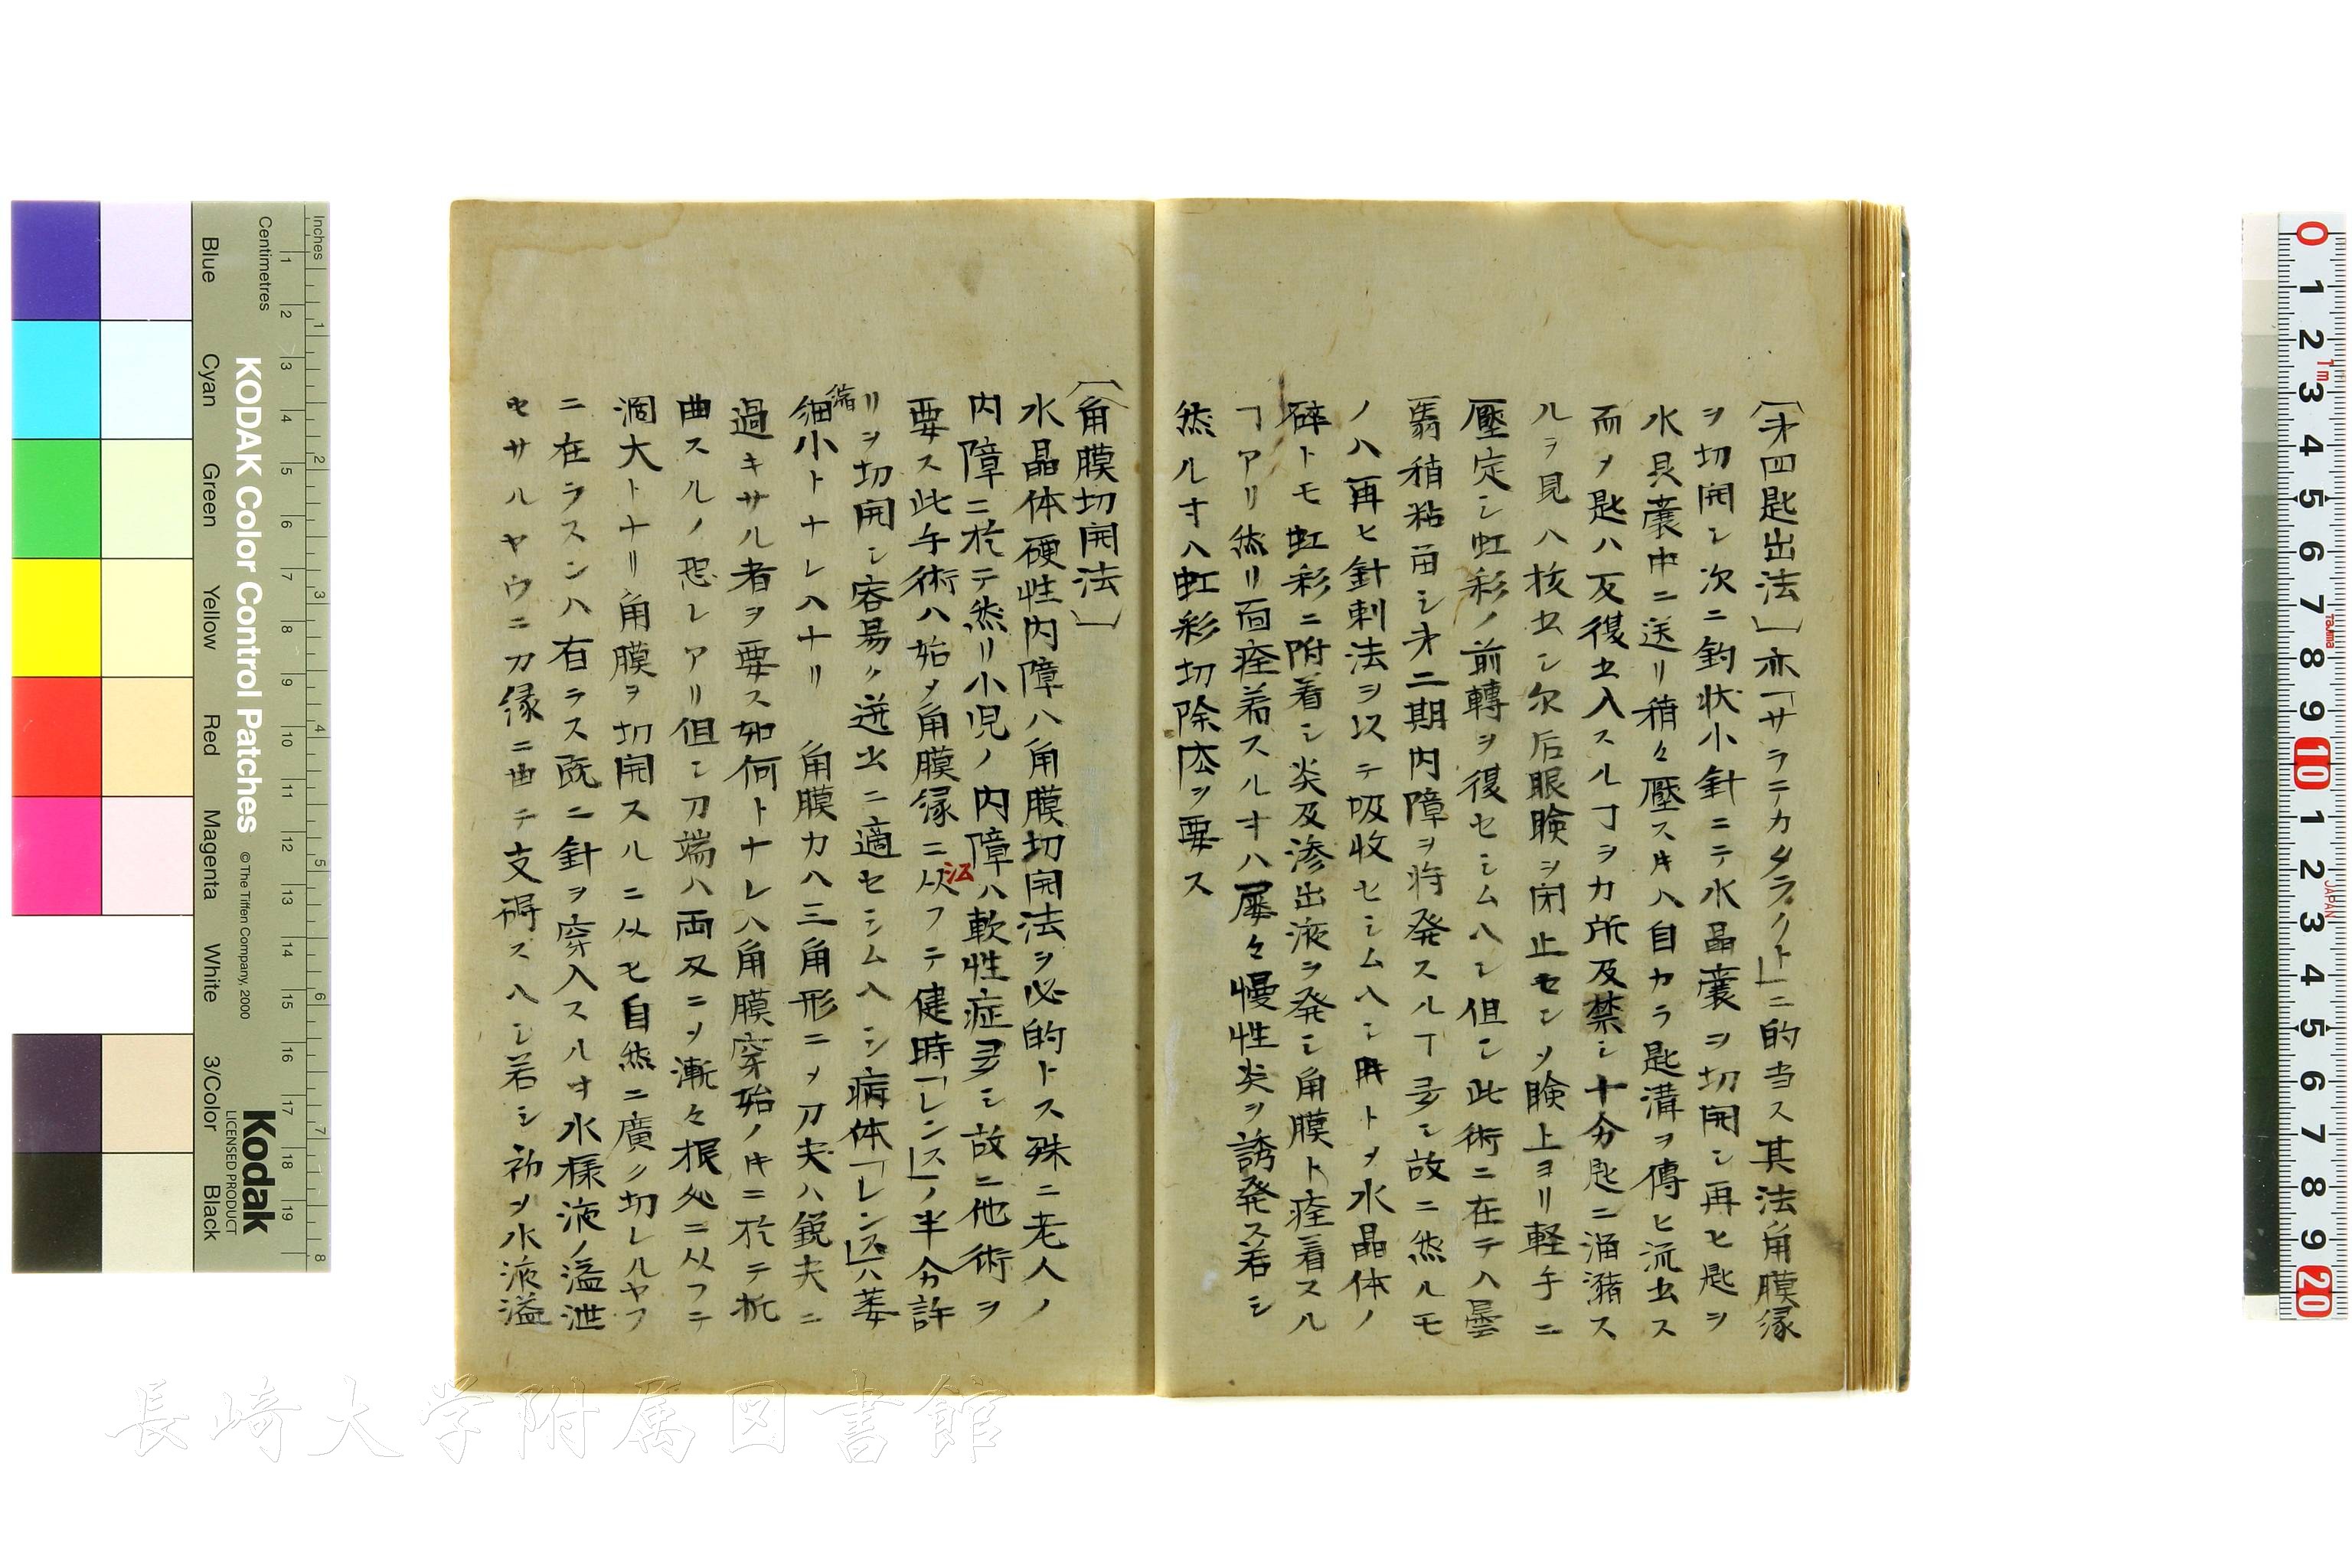 〔才四匙出法〕亦「サラテカタラクト」ニ的当ス其法角膜縁
ヲ切開シ次ニ鈎状小針ニテ水晶嚢ヲ切開シ再ヒ匙ヲ
水晶嚢中ニ送リ稍々壓スキハ自カラ匙溝ヲ傳ヒ流出ス
而メ匙ハ反復出入スルヿヲカ所及禁シ十分匙ニ溜瀦ス
ルヲ見ハ核出シ尓后眼瞼ヲ闭止セシメ瞼上ヨリ軽手ニ
壓定シ虹彩ノ前轉ヲ復セシムヘシ但シ此術ニ在テハ曇
翳稍粘甾シ才二期内障ヲ将発スルヿ多シ故ニ然ルモ
ノハ再ヒ針刺法ヲ以テ吸收セシムヘシ時トメ水晶体ノ
碎トモ虹彩ニ附着シ炎及渗出液ヲ発シ角膜ト痊着スル
ヿアリ然リ而痊着スルオハ屡々慢性炎ヲ誘発ス若シ
然ルオハ虹彩切除広ヲ要ス
〔角膜切開法〕
水晶体硬性内障ハ角膜切開法ヲ必的トス殊ニ老人ノ
内障ニ於テ然リ小児ノ内障ハ軟性症多シ故ニ他術ヲ
要ス此手術ハ始メ角膜縁ニ从フテ健時「レンス」ノ半分許
沿
リヲ切開シ容易ク送出ニ適セシムヘシ病体「レンス」ハ萎
縮
細小トナレハナリ 角膜力ハ三角形ニメ刀夫ハ鋭夫ニ
過キサル者ヲ要ス如何トナレハ角膜穿始ノキニ於テ扤
曲スルノ恐レアリ但シ刀端ハ両刄ニメ漸々根処ニ从フテ
濶大トナリ角膜ヲ切開スルニ从モ自然ニ廣ク切レルヤフ
ニ在ラスンハ有ラス既ニ針ヲ穿入スルオ水樣液ノ溢泄
セサルヤウニ刀縁ニ由テ支碍スヘシ若シ初メ水液溢
KODAK Color Control Patches
© The Tiffen Company, 2000
Kodak
LICENSED PRODUCT
Inches
Centimetres
Blue
Cyan
Green
Yellow
Red
Magenta
White
3/Color
Black
長崎大学附属図書館